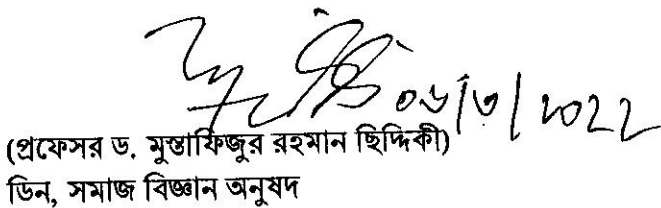 ০৬/৩/২০২২
(প্রফেসর ড. মুস্তাফিজুর রহমান ছিদ্দিকী)
ডিন, সমাজ বিজ্ঞান অনুষদ